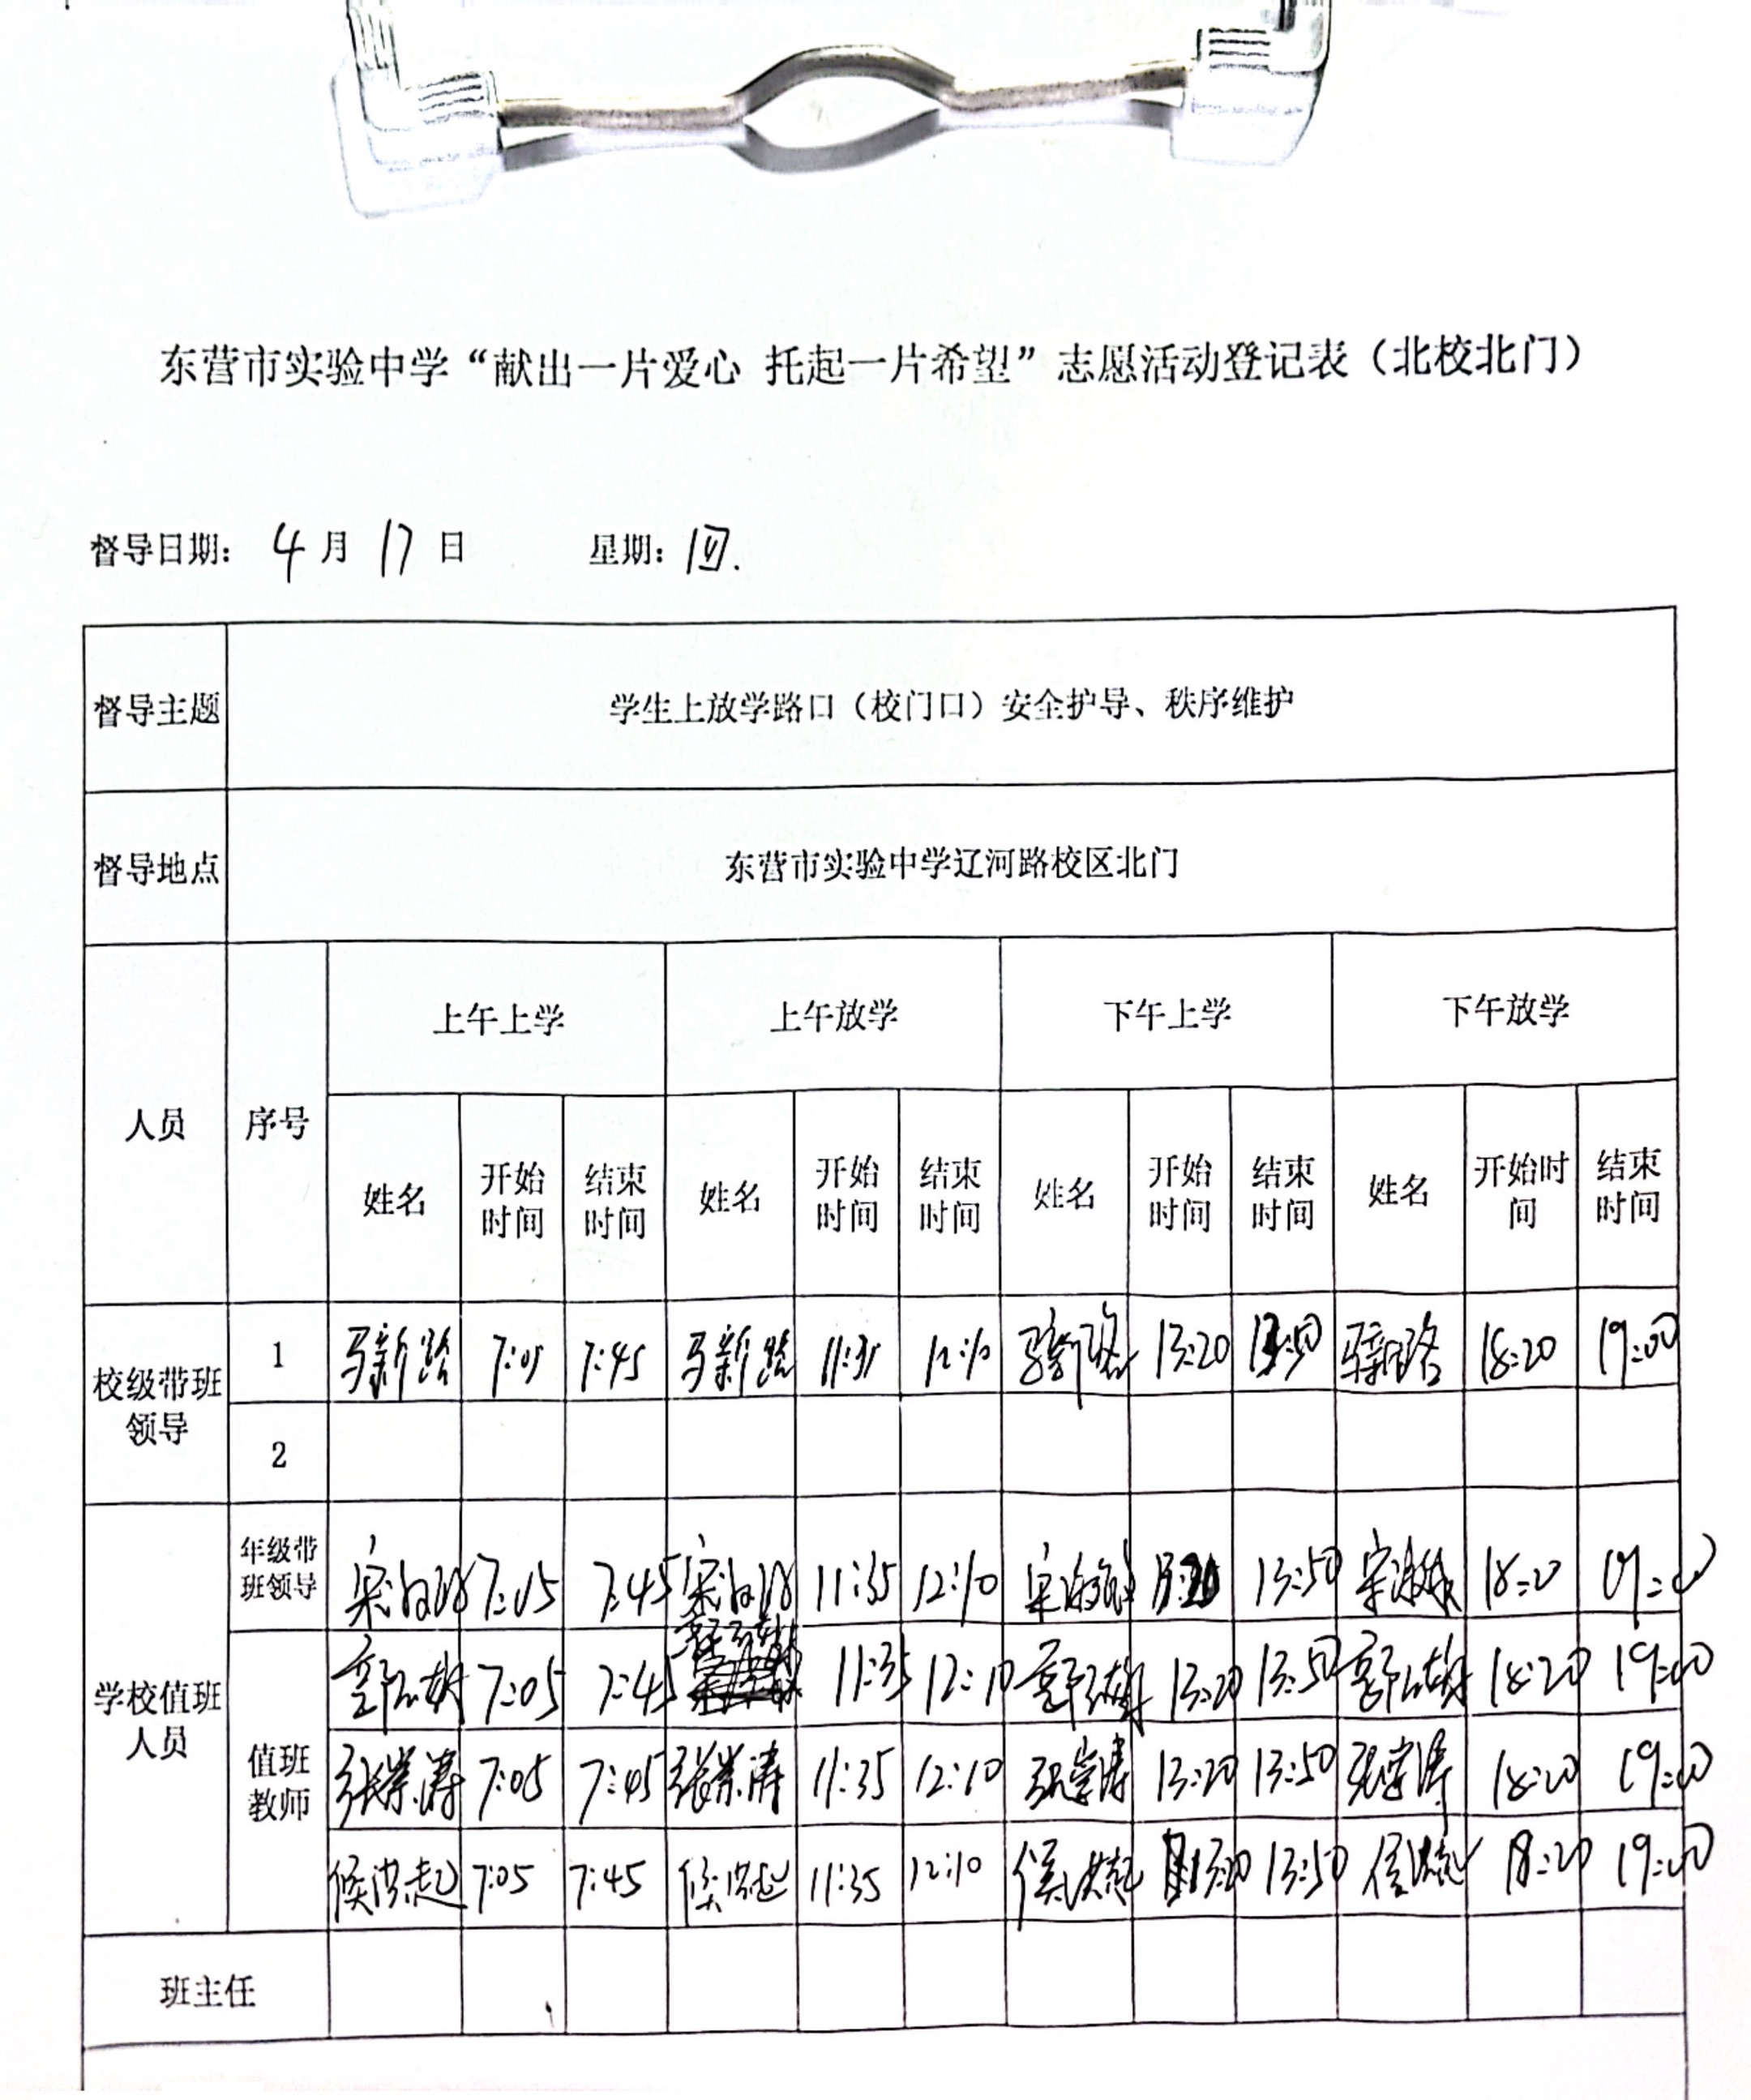 东营市实验中学“献出一片爱心 托起一片希望”志愿活动登记表（北校北门）
督导日期： 4 月 17 日 星期：四.
督导主题 学生上放学路口（校门口）安全护导、秩序维护
督导地点 东营市实验中学辽河路校区北门
人员 序号 上午上学 上午放学 下午上学 下午放学
姓名 开始时间 结束时间 姓名 开始时间 结束时间 姓名 开始时间 结束时间 姓名 开始时间 结束时间
校级带班领导 1 马新 7:05 7:45 马新 11:35 12:10 13:20 13:50 18:20 19:00
2
学校值班人员 年级带班领导 宋 7:05 7:45 宋 11:35 12:10 宋 13:20 13:50 宋 18:20 19:00
值班教师 郭 7:05 7:45 11:35 12:10 郭 13:20 13:50 郭 18:20 19:00
张崇涛 7:05 7:45 张崇涛 11:35 12:10 张崇涛 13:20 13:50 张崇涛 18:20 19:00
侯洪起 7:05 7:45 侯洪起 11:35 12:10 侯洪起 13:20 13:50 侯洪起 18:20 19:00
班主任